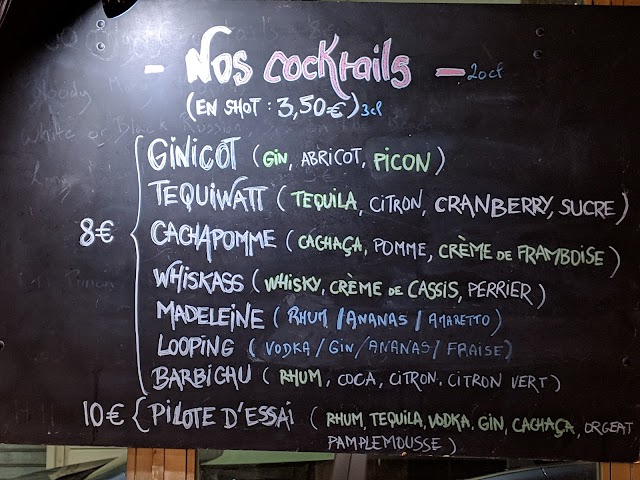 - Nos cocktails - 20cl
(EN SHOT : 3,50€) 3cl
GINICOT (GIN, ABRICOT, PICON)
TEQUIWATT (TEQUILA, CITRON, CRANBERRY, SUCRE)
8€ { CACHAPOMME (CACHAÇA, POMME, CRÈME DE FRAMBOISE)
WHISKASS (WHISKY, CRÈME DE CASSIS, PERRIER)
MADELEINE (RHUM / ANANAS / AMARETTO)
LOOPING (VODKA / GIN / ANANAS / FRAISE)
BARBICHU (RHUM, COCA, CITRON. CITRON VERT)
10€ { PILOTE D'ESSAI (RHUM, TEQUILA, VODKA, GIN, CACHAÇA, ORGEAT
PAMPLEMOUSSE)